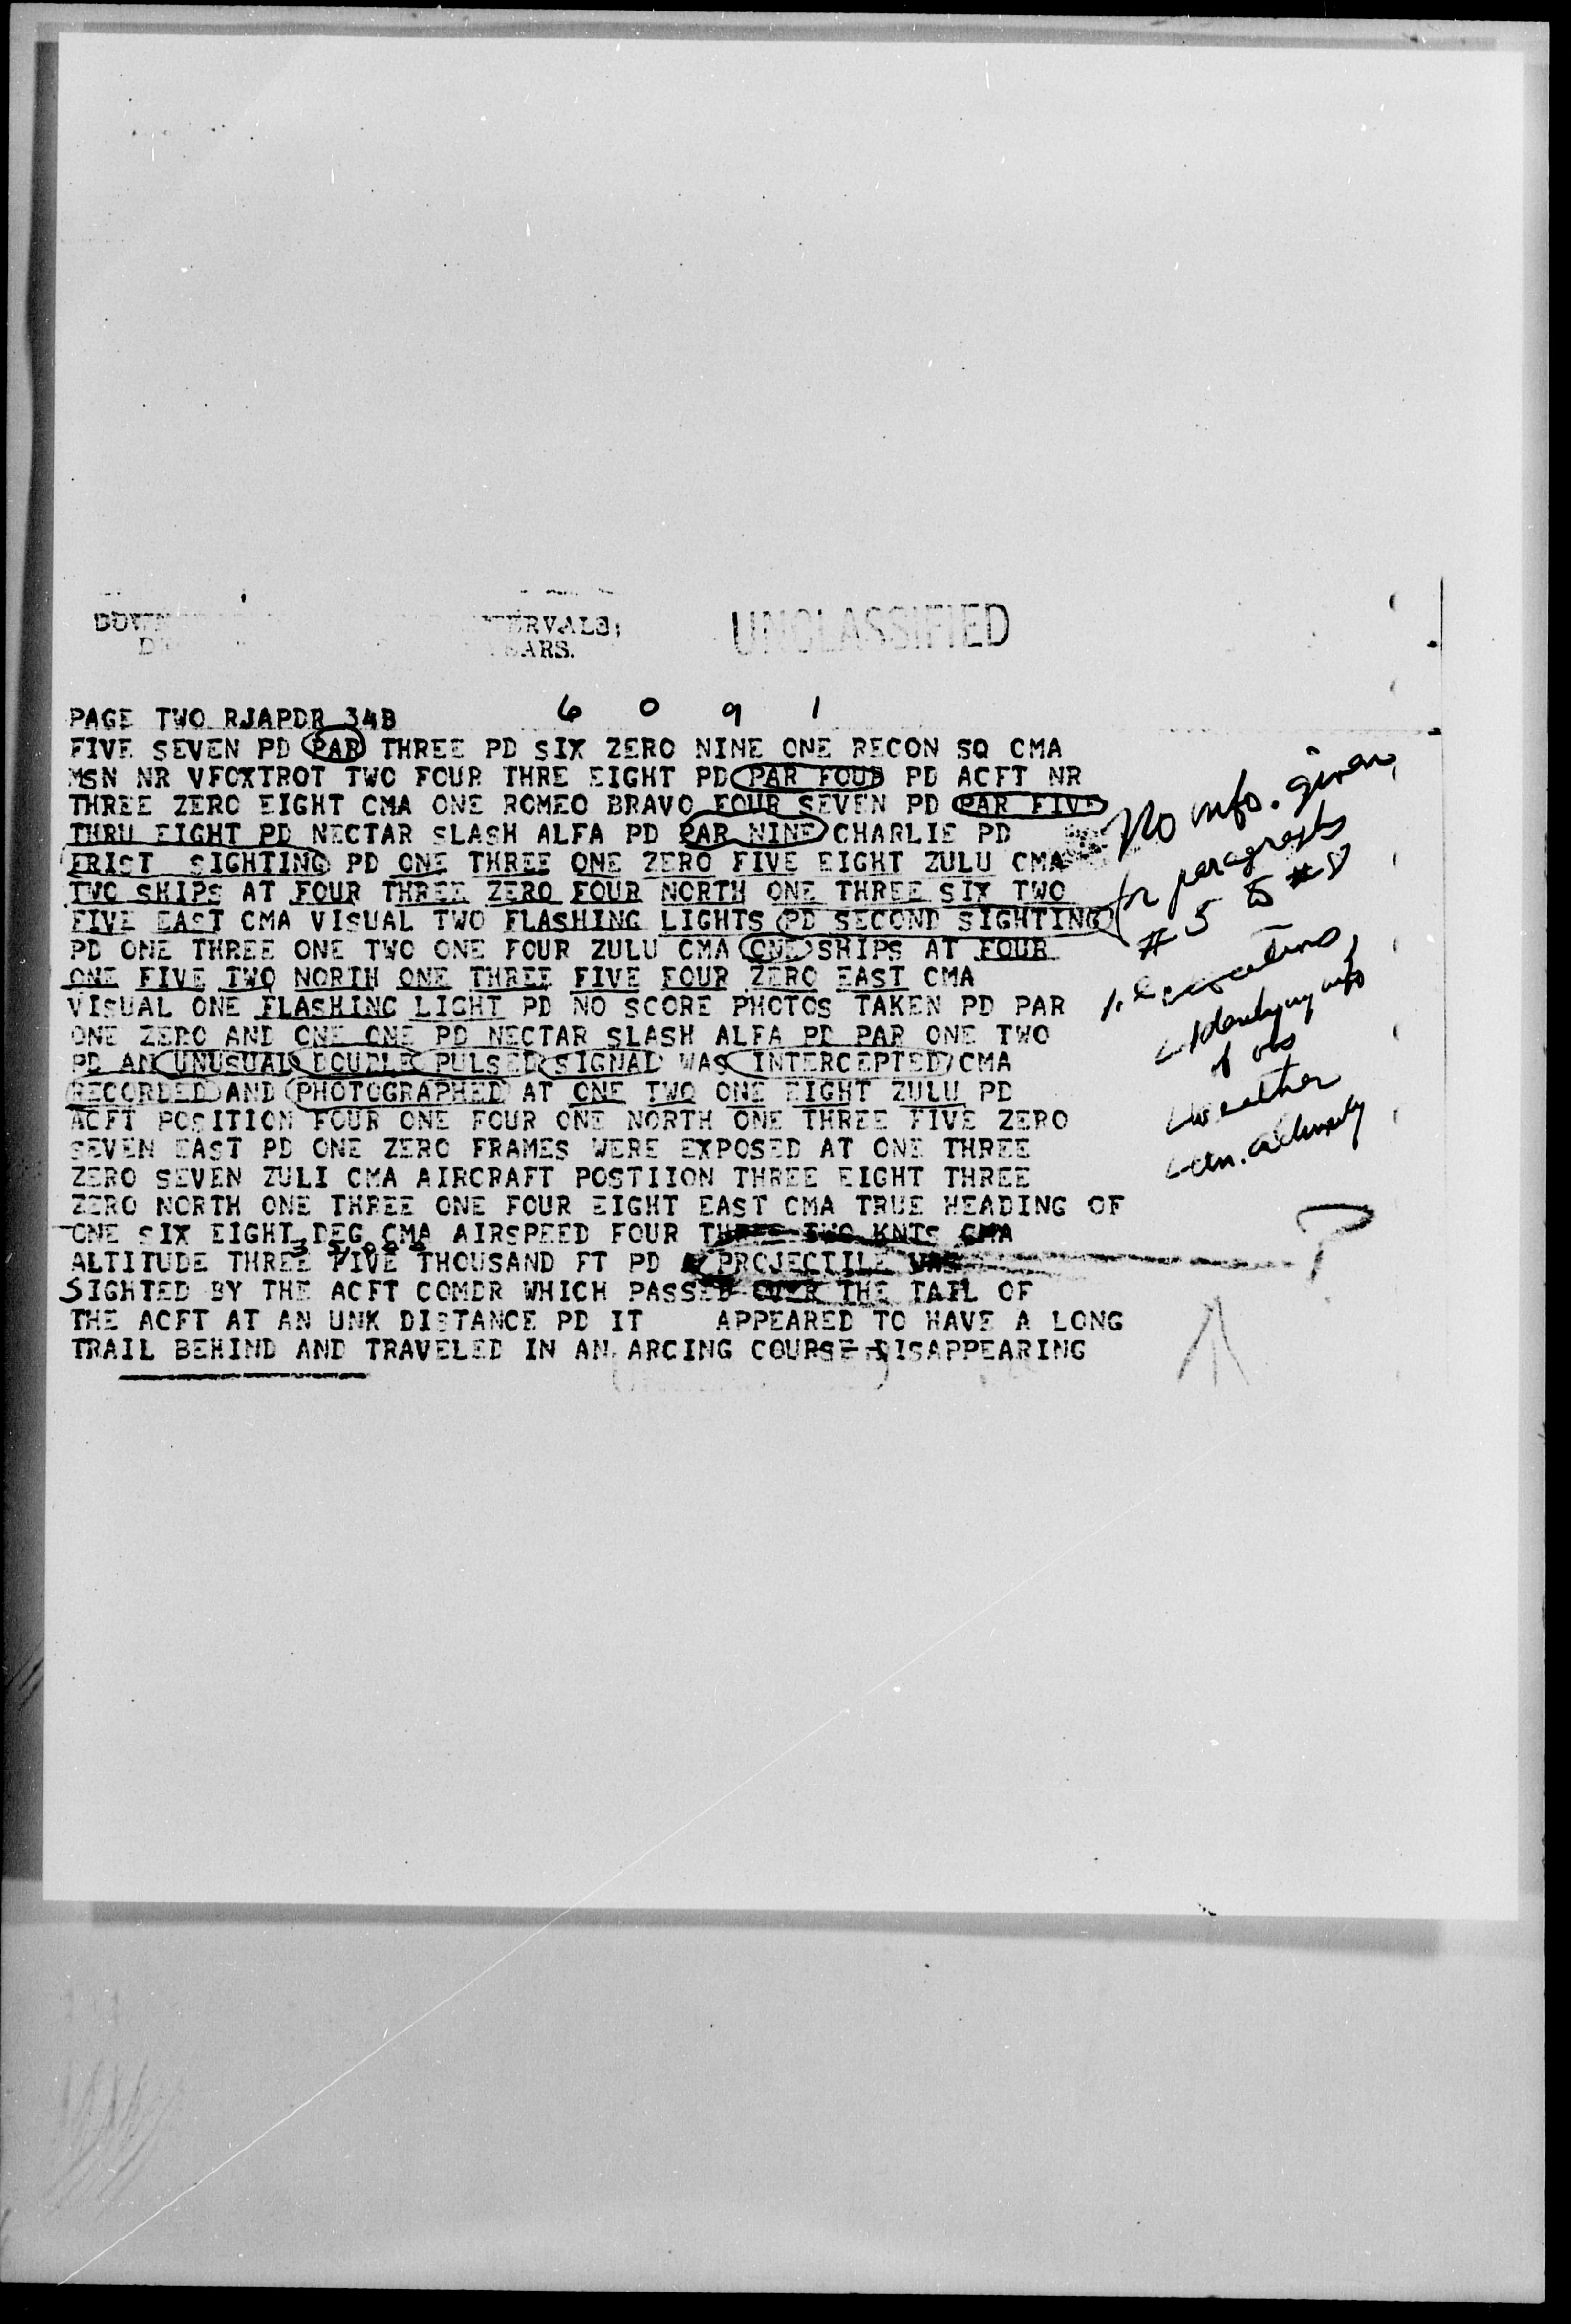 UNCLASSIFIED
6 0 9 1
PAGE TWO RJAPDR 34B
FIVE SEVEN PD PAR THREE PD SIX ZERO NINE ONE RECON SQ CMA
MSN NR VFOXTROT TWO FOUR THRE EIGHT PD PAR FOUR PD ACFT NR
THREE ZERO EIGHT CMA ONE ROMEO BRAVO FOUR SEVEN PD PAR FIVE
THRU EIGHT PD NECTAR SLASH ALFA PD PAR NINE CHARLIE PD
FRIST SIGHTING PD ONE THREE ONE ZERO FIVE EIGHT ZULU CMA
TWO SHIPS AT FOUR THREE ZERO FOUR NORTH ONE THREE SIX TWO
FIVE EAST CMA VISUAL TWO FLASHING LIGHTS PD SECOND SIGHTING
PD ONE THREE ONE TWO ONE FOUR ZULU CMA ONE SHIPS AT FOUR
ONE FIVE TWO NORTH ONE THREE FIVE FOUR ZERO EAST CMA
VISUAL ONE FLASHING LIGHT PD NO SCORE PHOTOS TAKEN PD PAR
ONE ZERO AND ONE ONE PD NECTAR SLASH ALFA PD PAR ONE TWO
PD AN UNUSUAL DOUBLE PULSED SIGNAL WAS INTERCEPTED CMA
RECORDED AND PHOTOGRAPHED AT ONE TWO ONE EIGHT ZULU PD
ACFT POSITION FOUR ONE FOUR ONE NORTH ONE THREE FIVE ZERO
SEVEN EAST PD ONE ZERO FRAMES WERE EXPOSED AT ONE THREE
ZERO SEVEN ZULI CMA AIRCRAFT POSTIION THREE EIGHT THREE
ZERO NORTH ONE THREE ONE FOUR EIGHT EAST CMA TRUE HEADING OF
ONE SIX EIGHT DEG CMA AIRSPEED FOUR THREE TWO KNTS CMA
ALTITUDE THREE FIVE THOUSAND FT PD A PROJECTILE WAS
SIGHTED BY THE ACFT COMDR WHICH PASSED OVER THE TAIL OF
THE ACFT AT AN UNK DISTANCE PD IT APPEARED TO HAVE A LONG
TRAIL BEHIND AND TRAVELED IN AN ARCING COURSE DISAPPEARING
No info. given
for paragraphs
#5 to #8
i.e. locations,
identifying info
of obs
weather